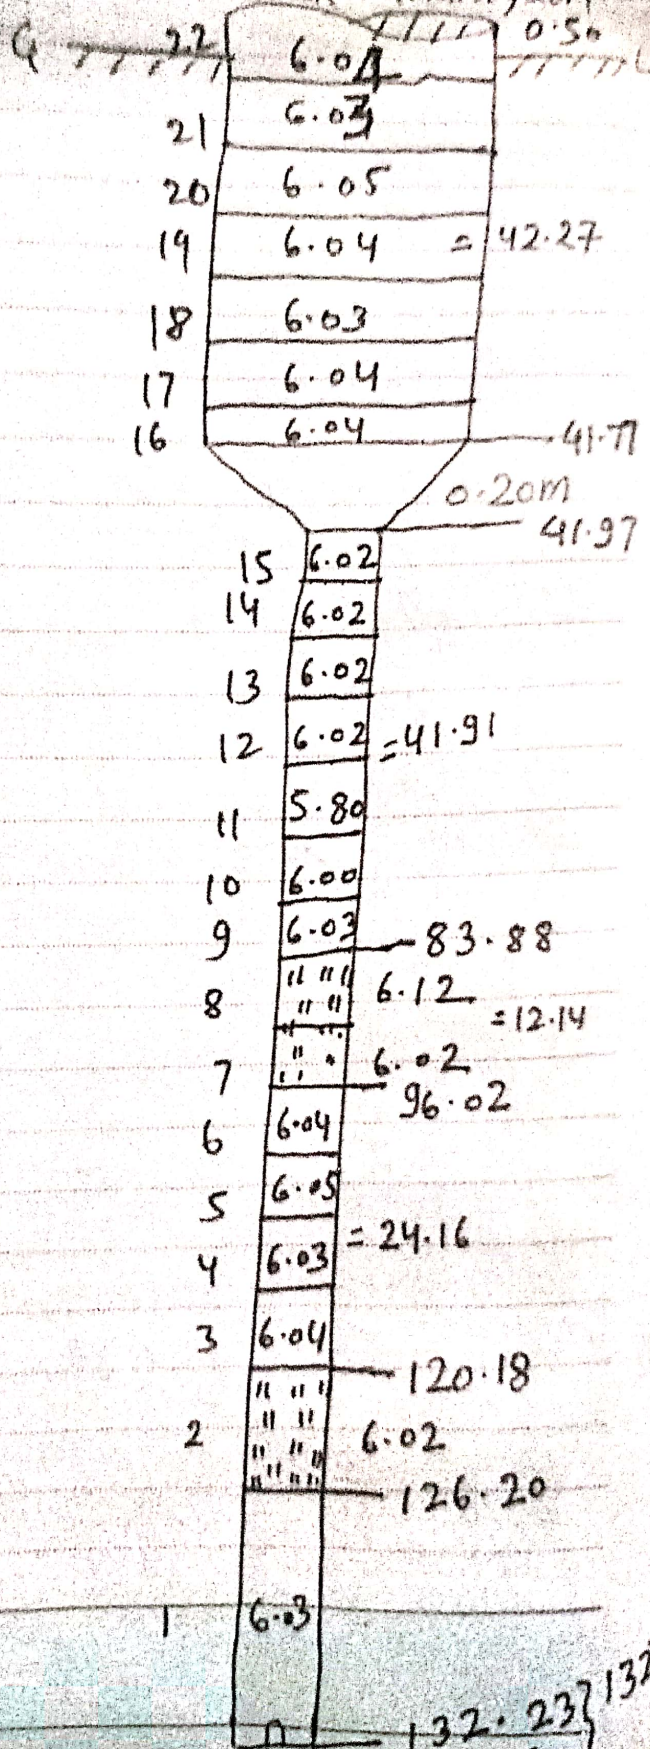 0.50
G 22 6.04
21 6.03
20 6.05
19 6.04 = 42.27
18 6.03
17 6.04
16 6.04 41.77
0.20m
41.97
15 6.02
14 6.02
13 6.02
12 6.02 = 41.91
11 5.80
10 6.00
9 6.03 83.88
8 6.12
= 12.14
7 6.02
96.02
6 6.04
5 6.05
= 24.16
4 6.03
3 6.04
120.18
2 6.02
126.20
1 6.03
132.23} 132